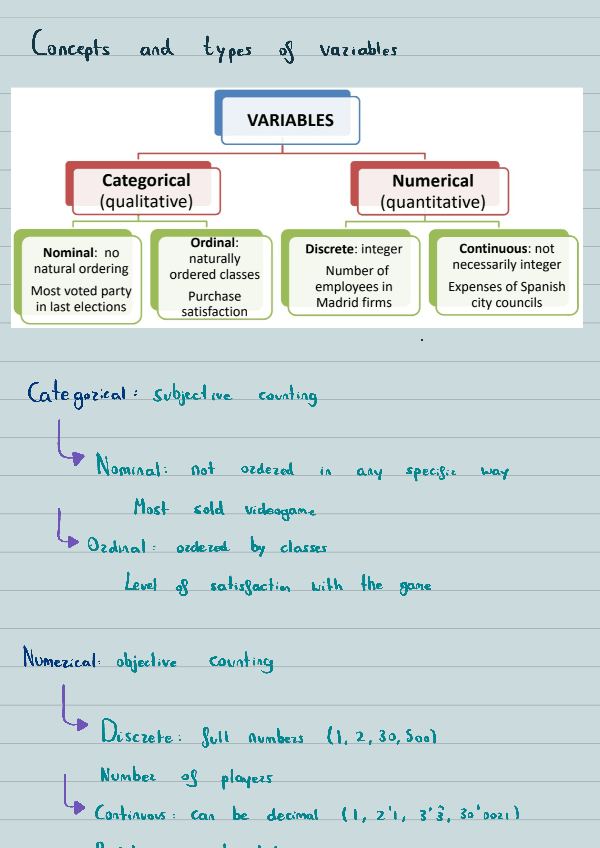 Concepts and types of variables
VARIABLES
Categorical
(qualitative)
Numerical
(quantitative)
Nominal: no
natural ordering
Most voted party
in last elections
Ordinal:
naturally
ordered classes
Purchase
satisfaction
Discrete: integer
Number of
employees in
Madrid firms
Continuous: not
necessarily integer
Expenses of Spanish
city councils
Categorical: subjective counting
Nominal: not ordered in any specific way
Most sold videogame
Ordinal: ordered by classes
Level of satisfaction with the game
Numerical: objective counting
Discrete: full numbers (1, 2, 30, 500)
Number of players
Continuous: can be decimal (1, 2'1, 3'3̂, 30'0021)